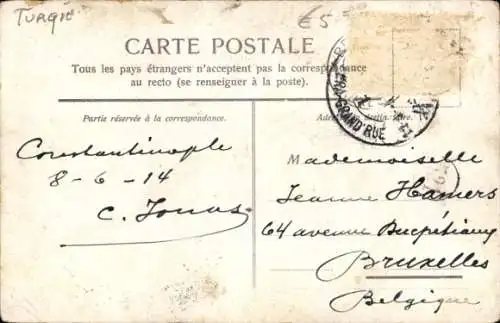 Turqie
€5
CARTE POSTALE
Tous les pays étrangers n'acceptent pas la correspondance
au recto (se renseigner à la poste).
GRAND'RUE
Partie réservée à la correspondance.
Constantinople
8-6-14
C. Jonas
Mademoiselle
Jeanne Hamers
64 avenue
Bruxelles
Belgique